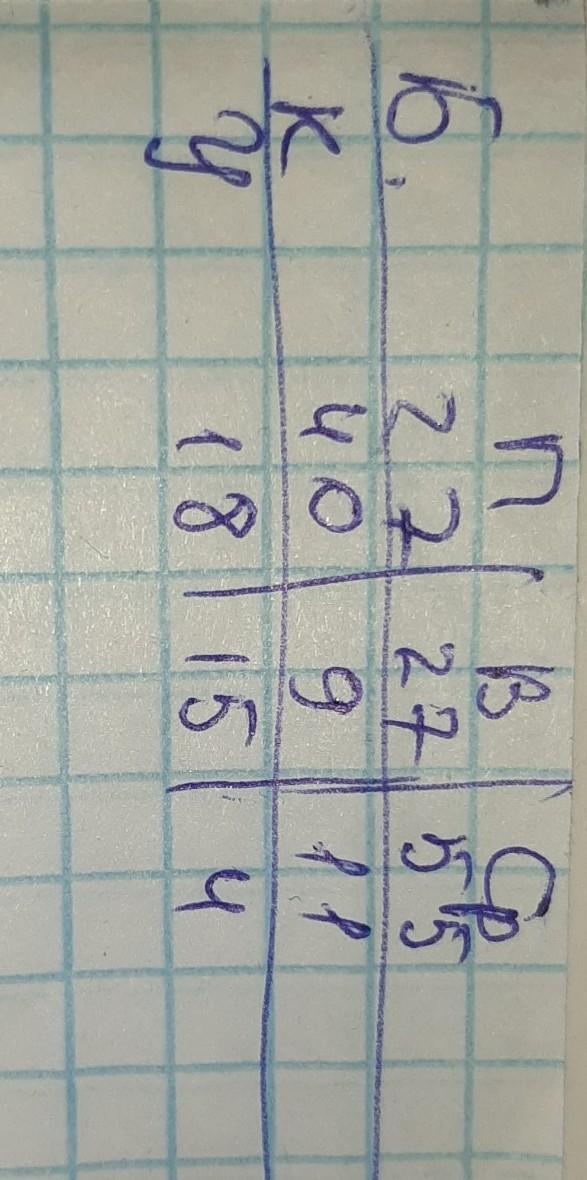 п В Ср
Б. 27 27 55
К 40 9 11
У 18 15 4